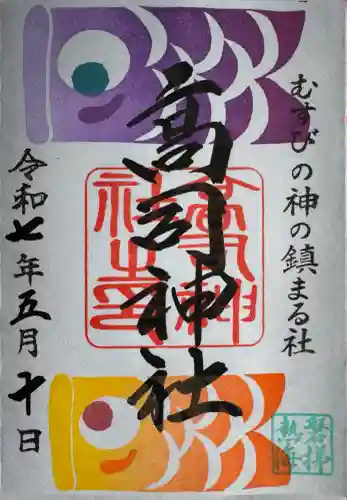 むすびの神の鎮まる社
高司神社
令和七年五月十日